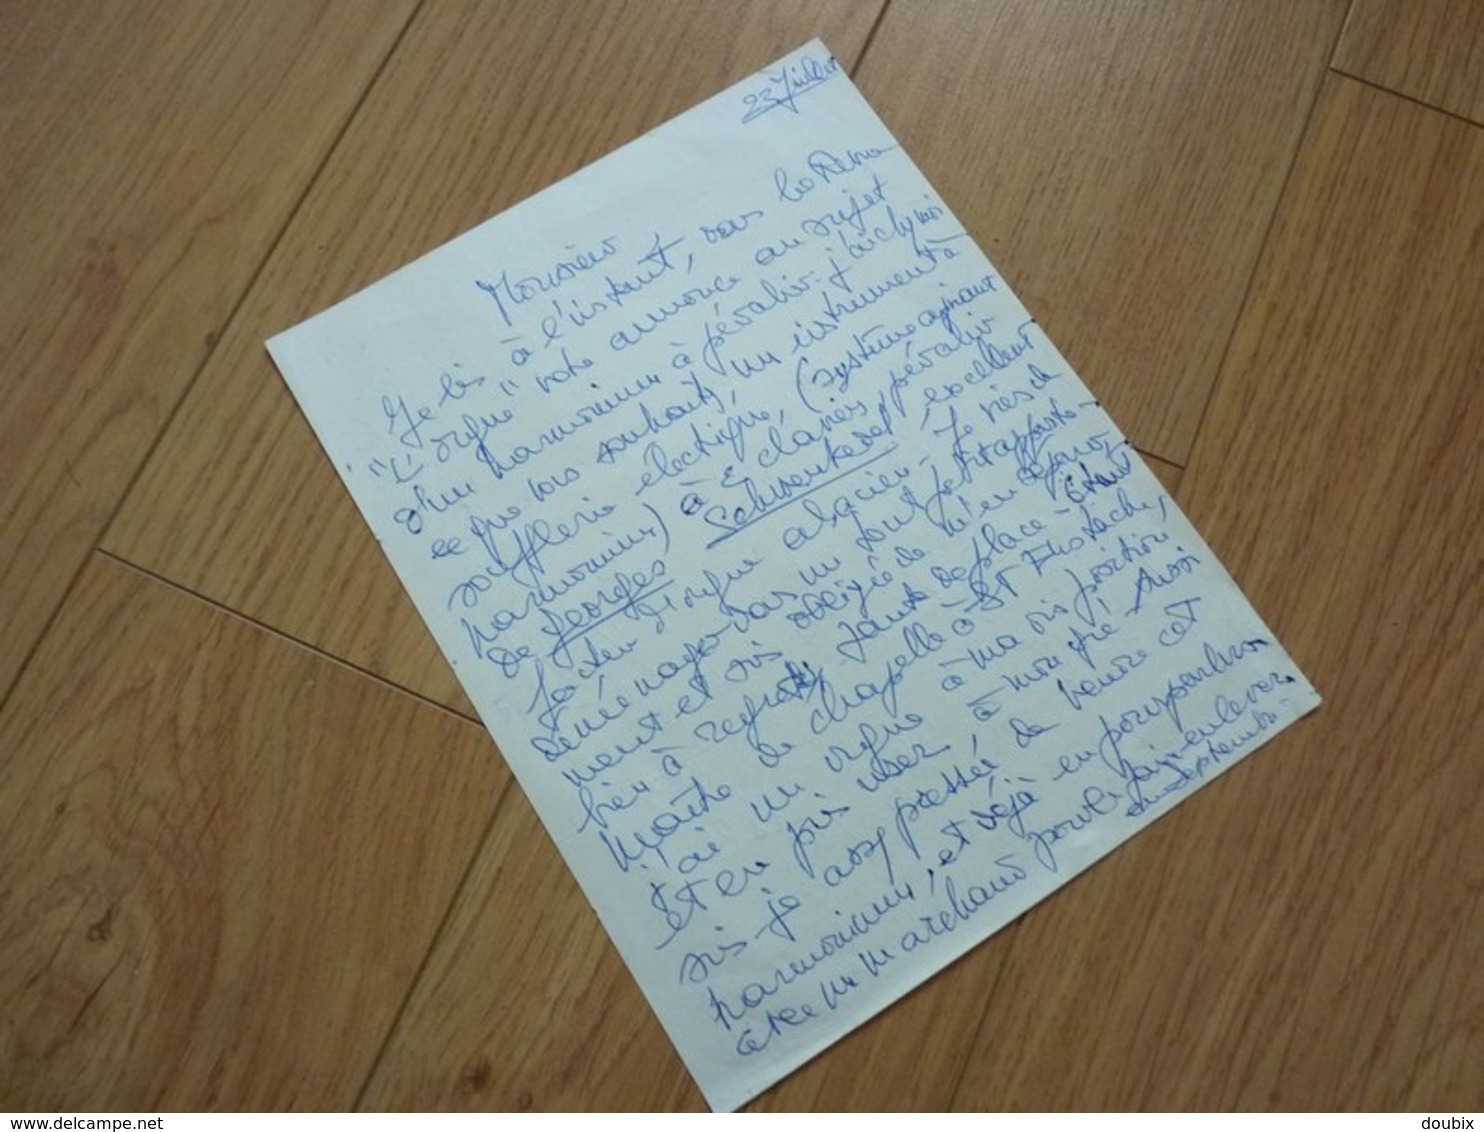 23 Juillet
Monsieur
Je lis à l'instant, dans
"L'orgue" votre annonce au sujet
d'un harmonium à pédalier. j'ai chez moi
ce que vous souhaitez, un instrument à
soufflerie électrique, (système aspirant
harmonium) à 2 claviers pédalier
de Georges Schwenkedel, excellent
facteur d'orgue alsacien. Je viens de
déménager dans un tout petit apparte-
ment et suis obligée de m'en
bien à regret, faute de place - Etant
Maître de chapelle à St Eustache,
j'ai un orgue à ma disposition
et en puis user, à mon gré - Aussi
suis-je assez pressée de vendre cet
harmonium, et déjà en pourparlers
avec un marchand pour le faire enlever
en Septembre
delcampe.net
doubix